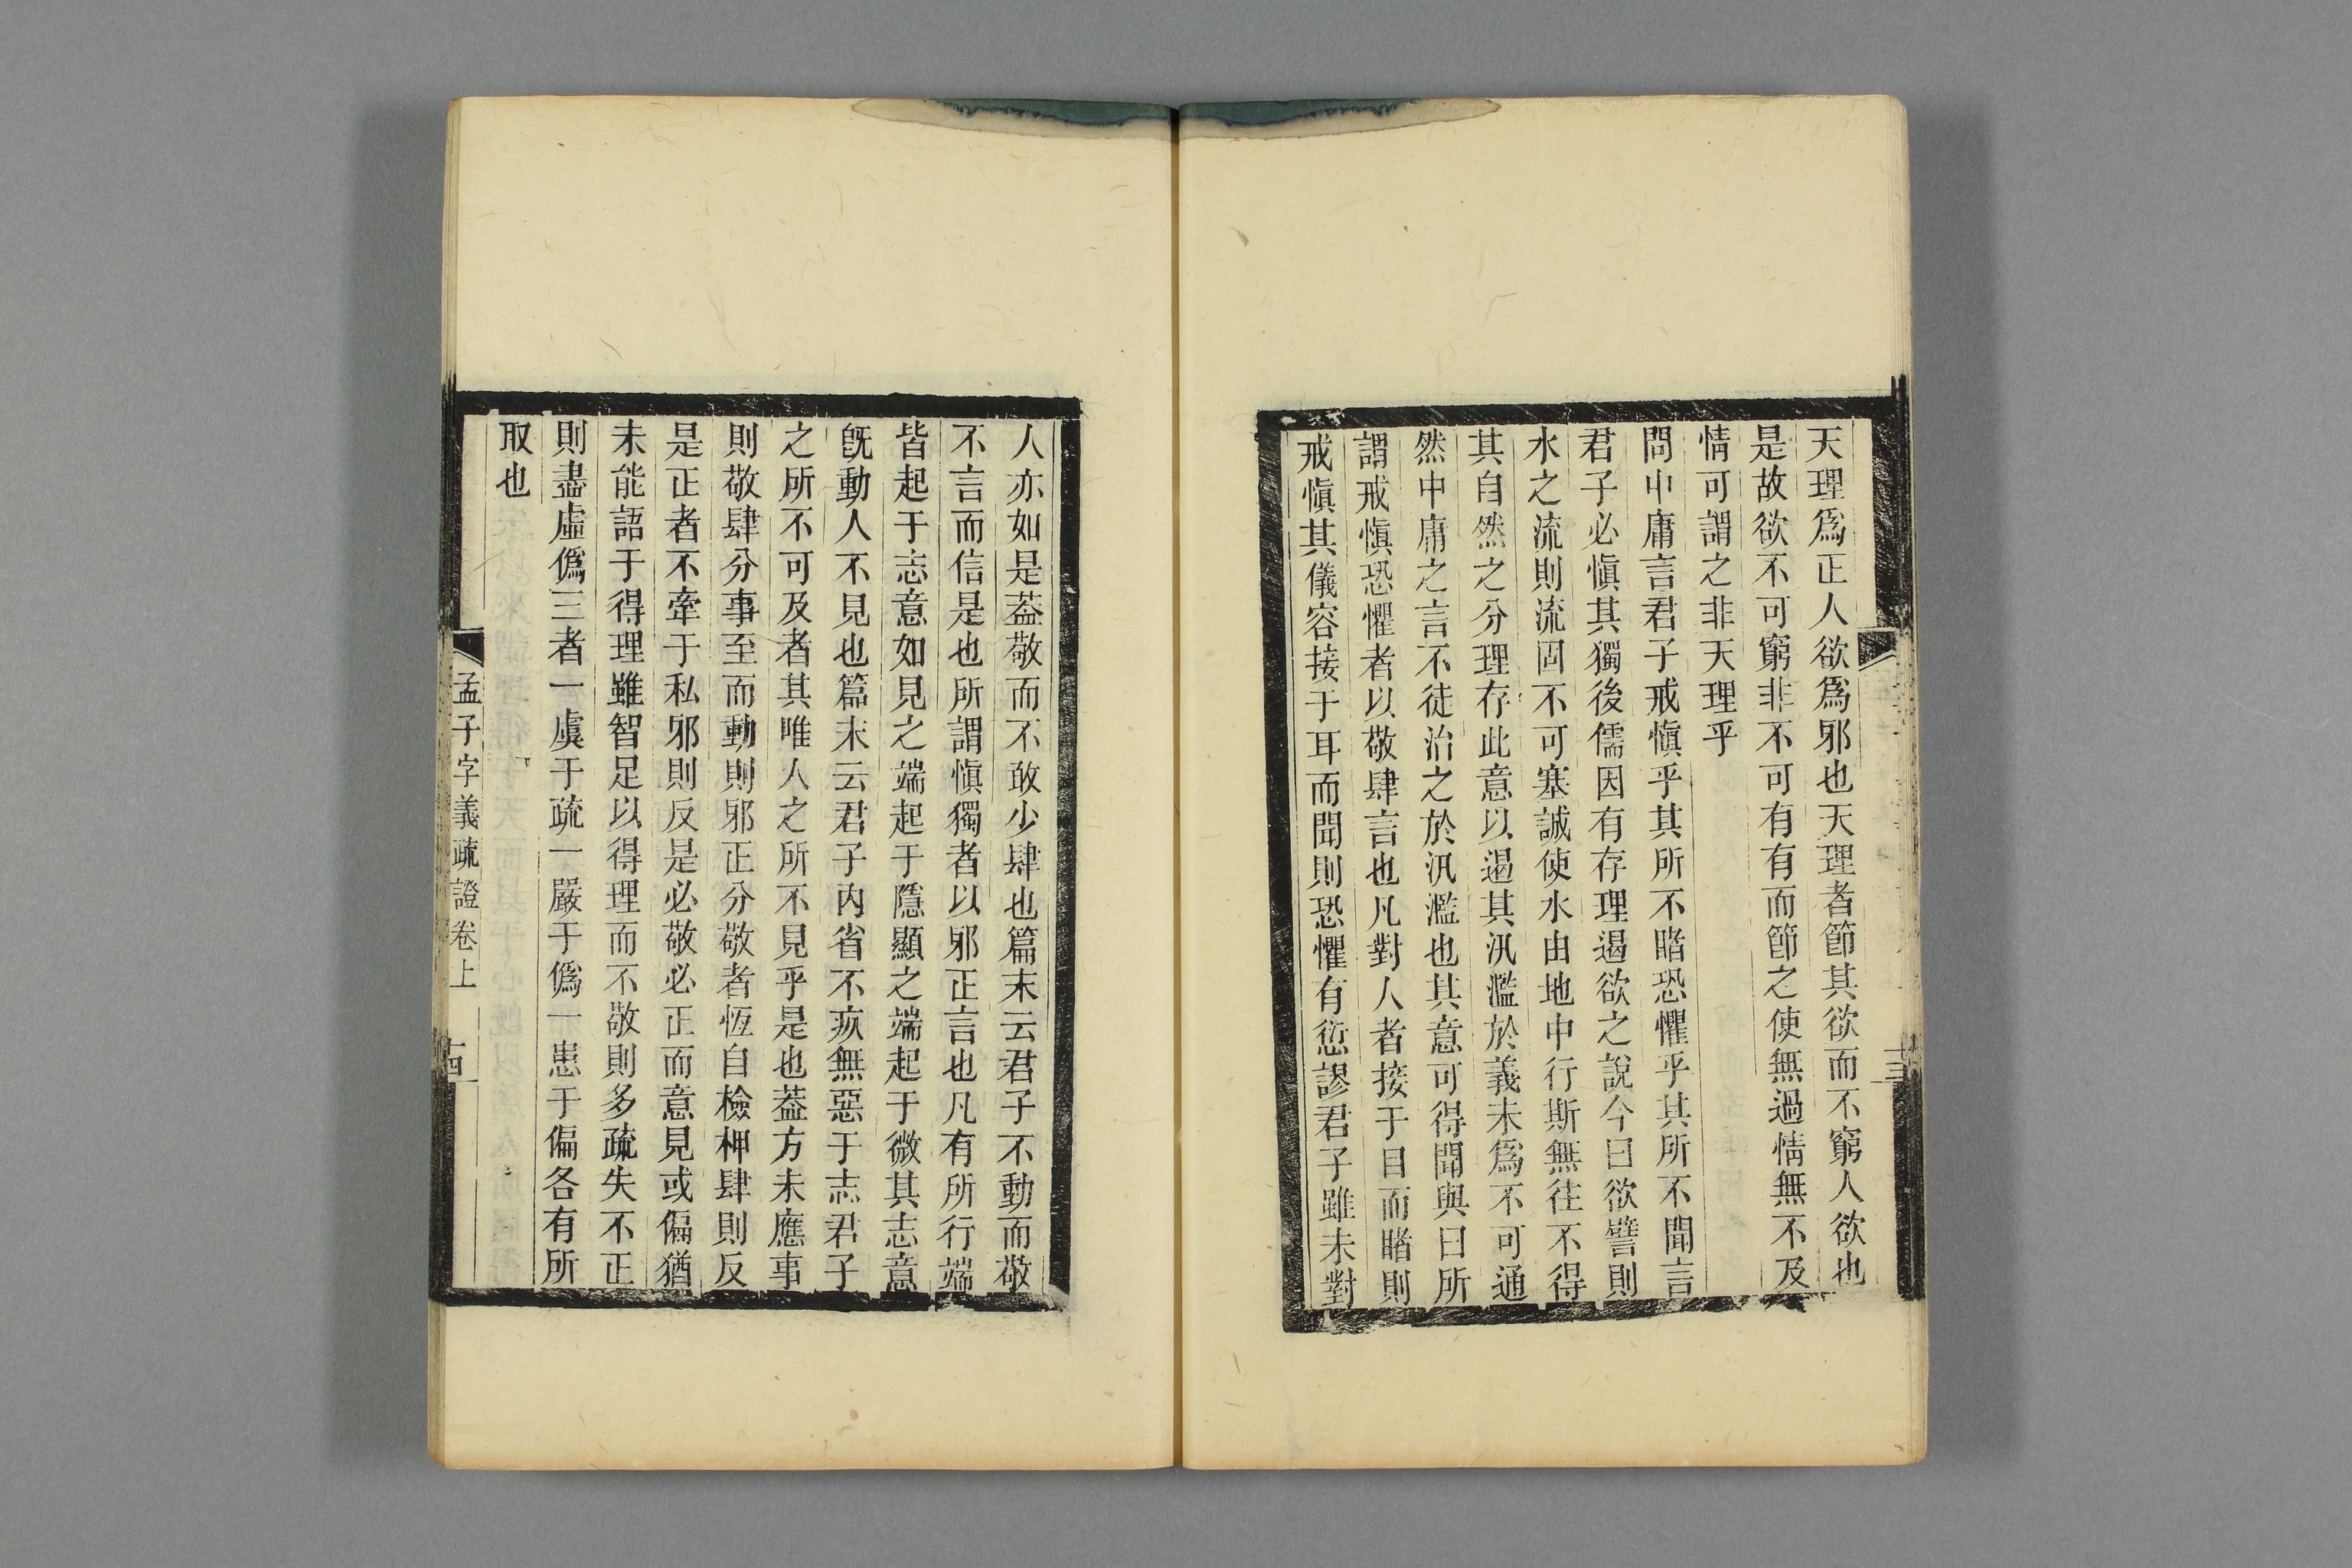 天理爲正人欲爲邪也天理者節其欲而不窮人欲也
是故欲不可窮非不可有有而節之使無過情無不及
情可謂之非天理乎
問中庸言君子戒愼乎其所不睹恐懼乎其所不聞言
君子必愼其獨後儒因有存理遏欲之說今曰欲譬則
水之流則流固不可塞誠使水由地中行斯無往不得
其自然之分理存此意以遏其汎濫於義未爲不可通
然中庸之言不徒治之於汎濫也其意可得聞與曰所
謂戒愼恐懼者以敬肆言也凡對人者接于目而睹則
戒愼其儀容接于耳而聞則恐懼有愆謬君子雖未對
十三
人亦如是葢敬而不敢少肆也篇末云君子不動而敬
不言而信是也所謂愼獨者以邪正言也凡有所行端
皆起于志意如見之端起于隱顯之端起于微其志意
旣動人不見也篇末云君子內省不疚無惡于志君子
之所不可及者其唯人之所不見乎是也葢方未應事
則敬肆分事至而動則邪正分敬者恆自檢柙肆則反
是正者不牽于私邪則反是必敬必正而意見或偏猶
未能語于得理雖智足以得理而不敬則多疏失不正
則盡虛僞三者一虞于疏一嚴于僞一患于偏各有所
取也
孟子字義疏證卷上
十四